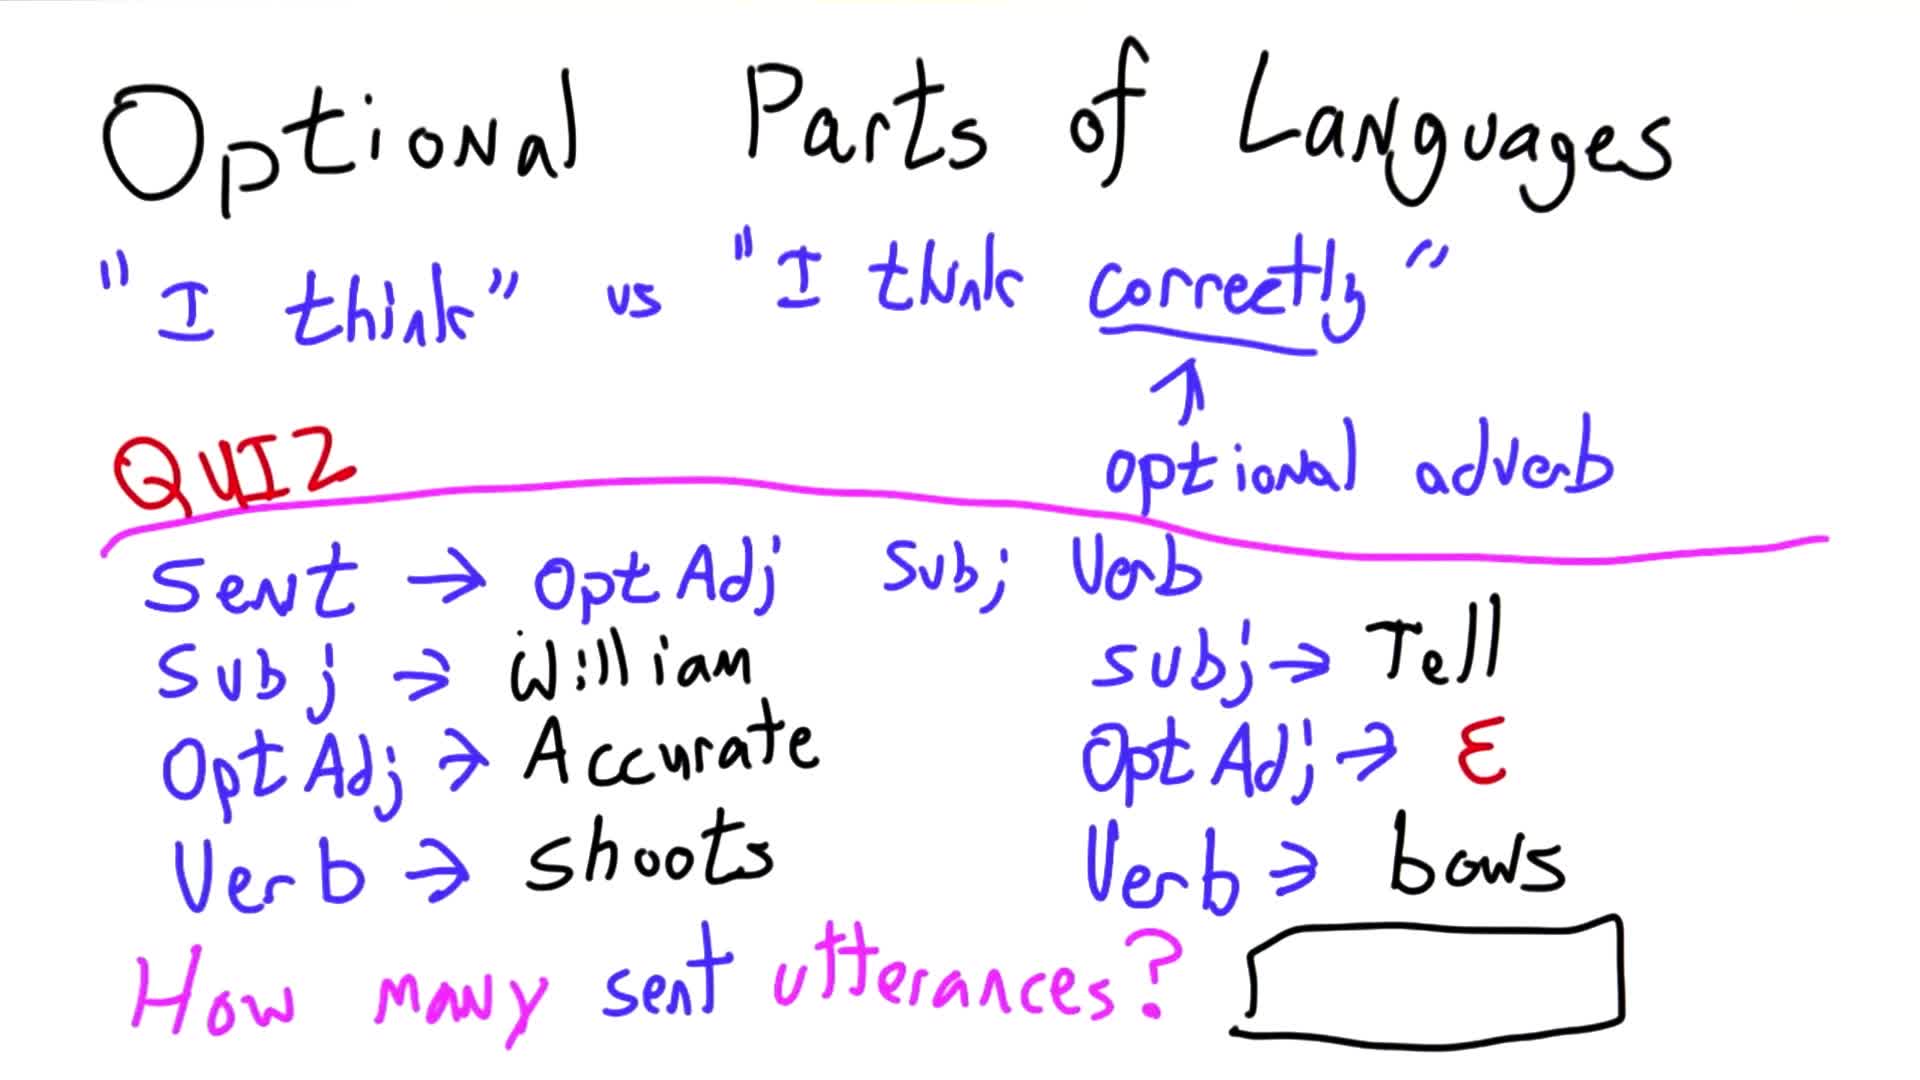 Optional Parts of Languages
"I think" vs "I think correctly"
↑
optional adverb
QUIZ
Sent → OptAdj Subj Verb
Subj → William
subj → Tell
OptAdj → Accurate
OptAdj → ε
Verb → shoots
Verb → bows
How many sent utterances?